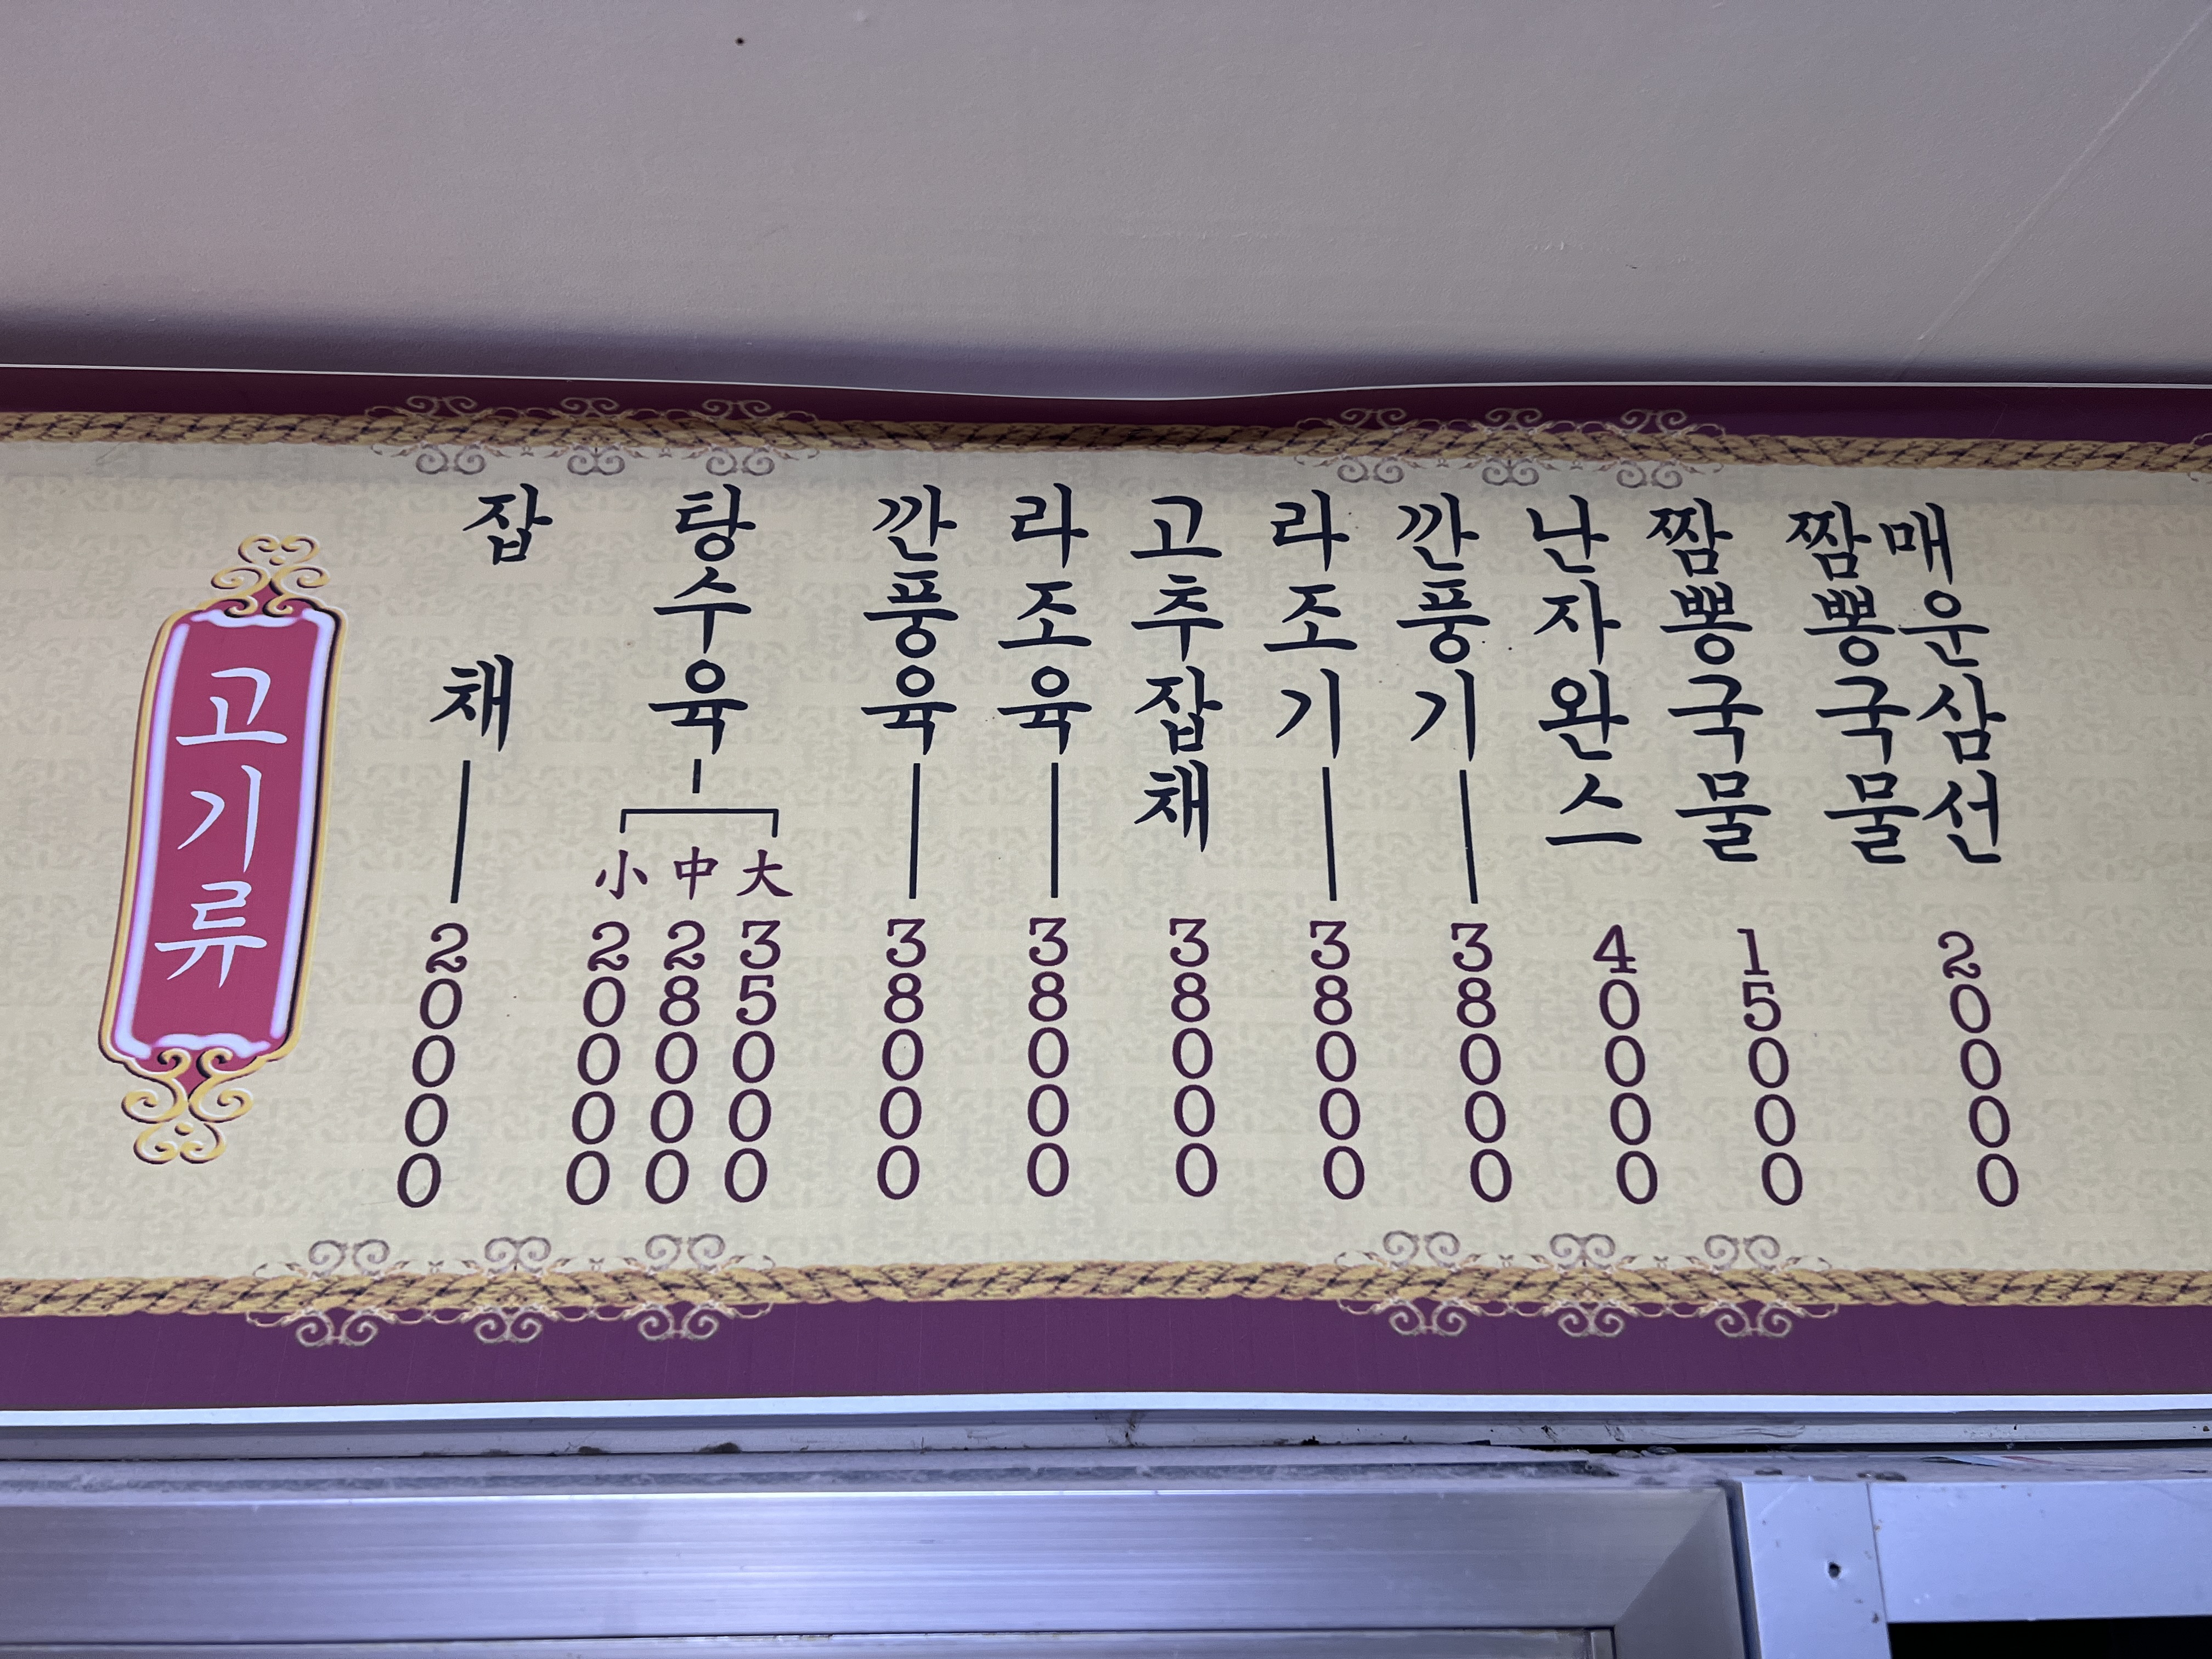 고기류
잡채 20000
탕수육
小 20000
中 28000
大 35000
깐풍육 38000
라조육 38000
고추잡채 38000
라조기 38000
깐풍기 38000
난자완스 40000
짬뽕국물 15000
매운삼선
짬뽕국물 20000